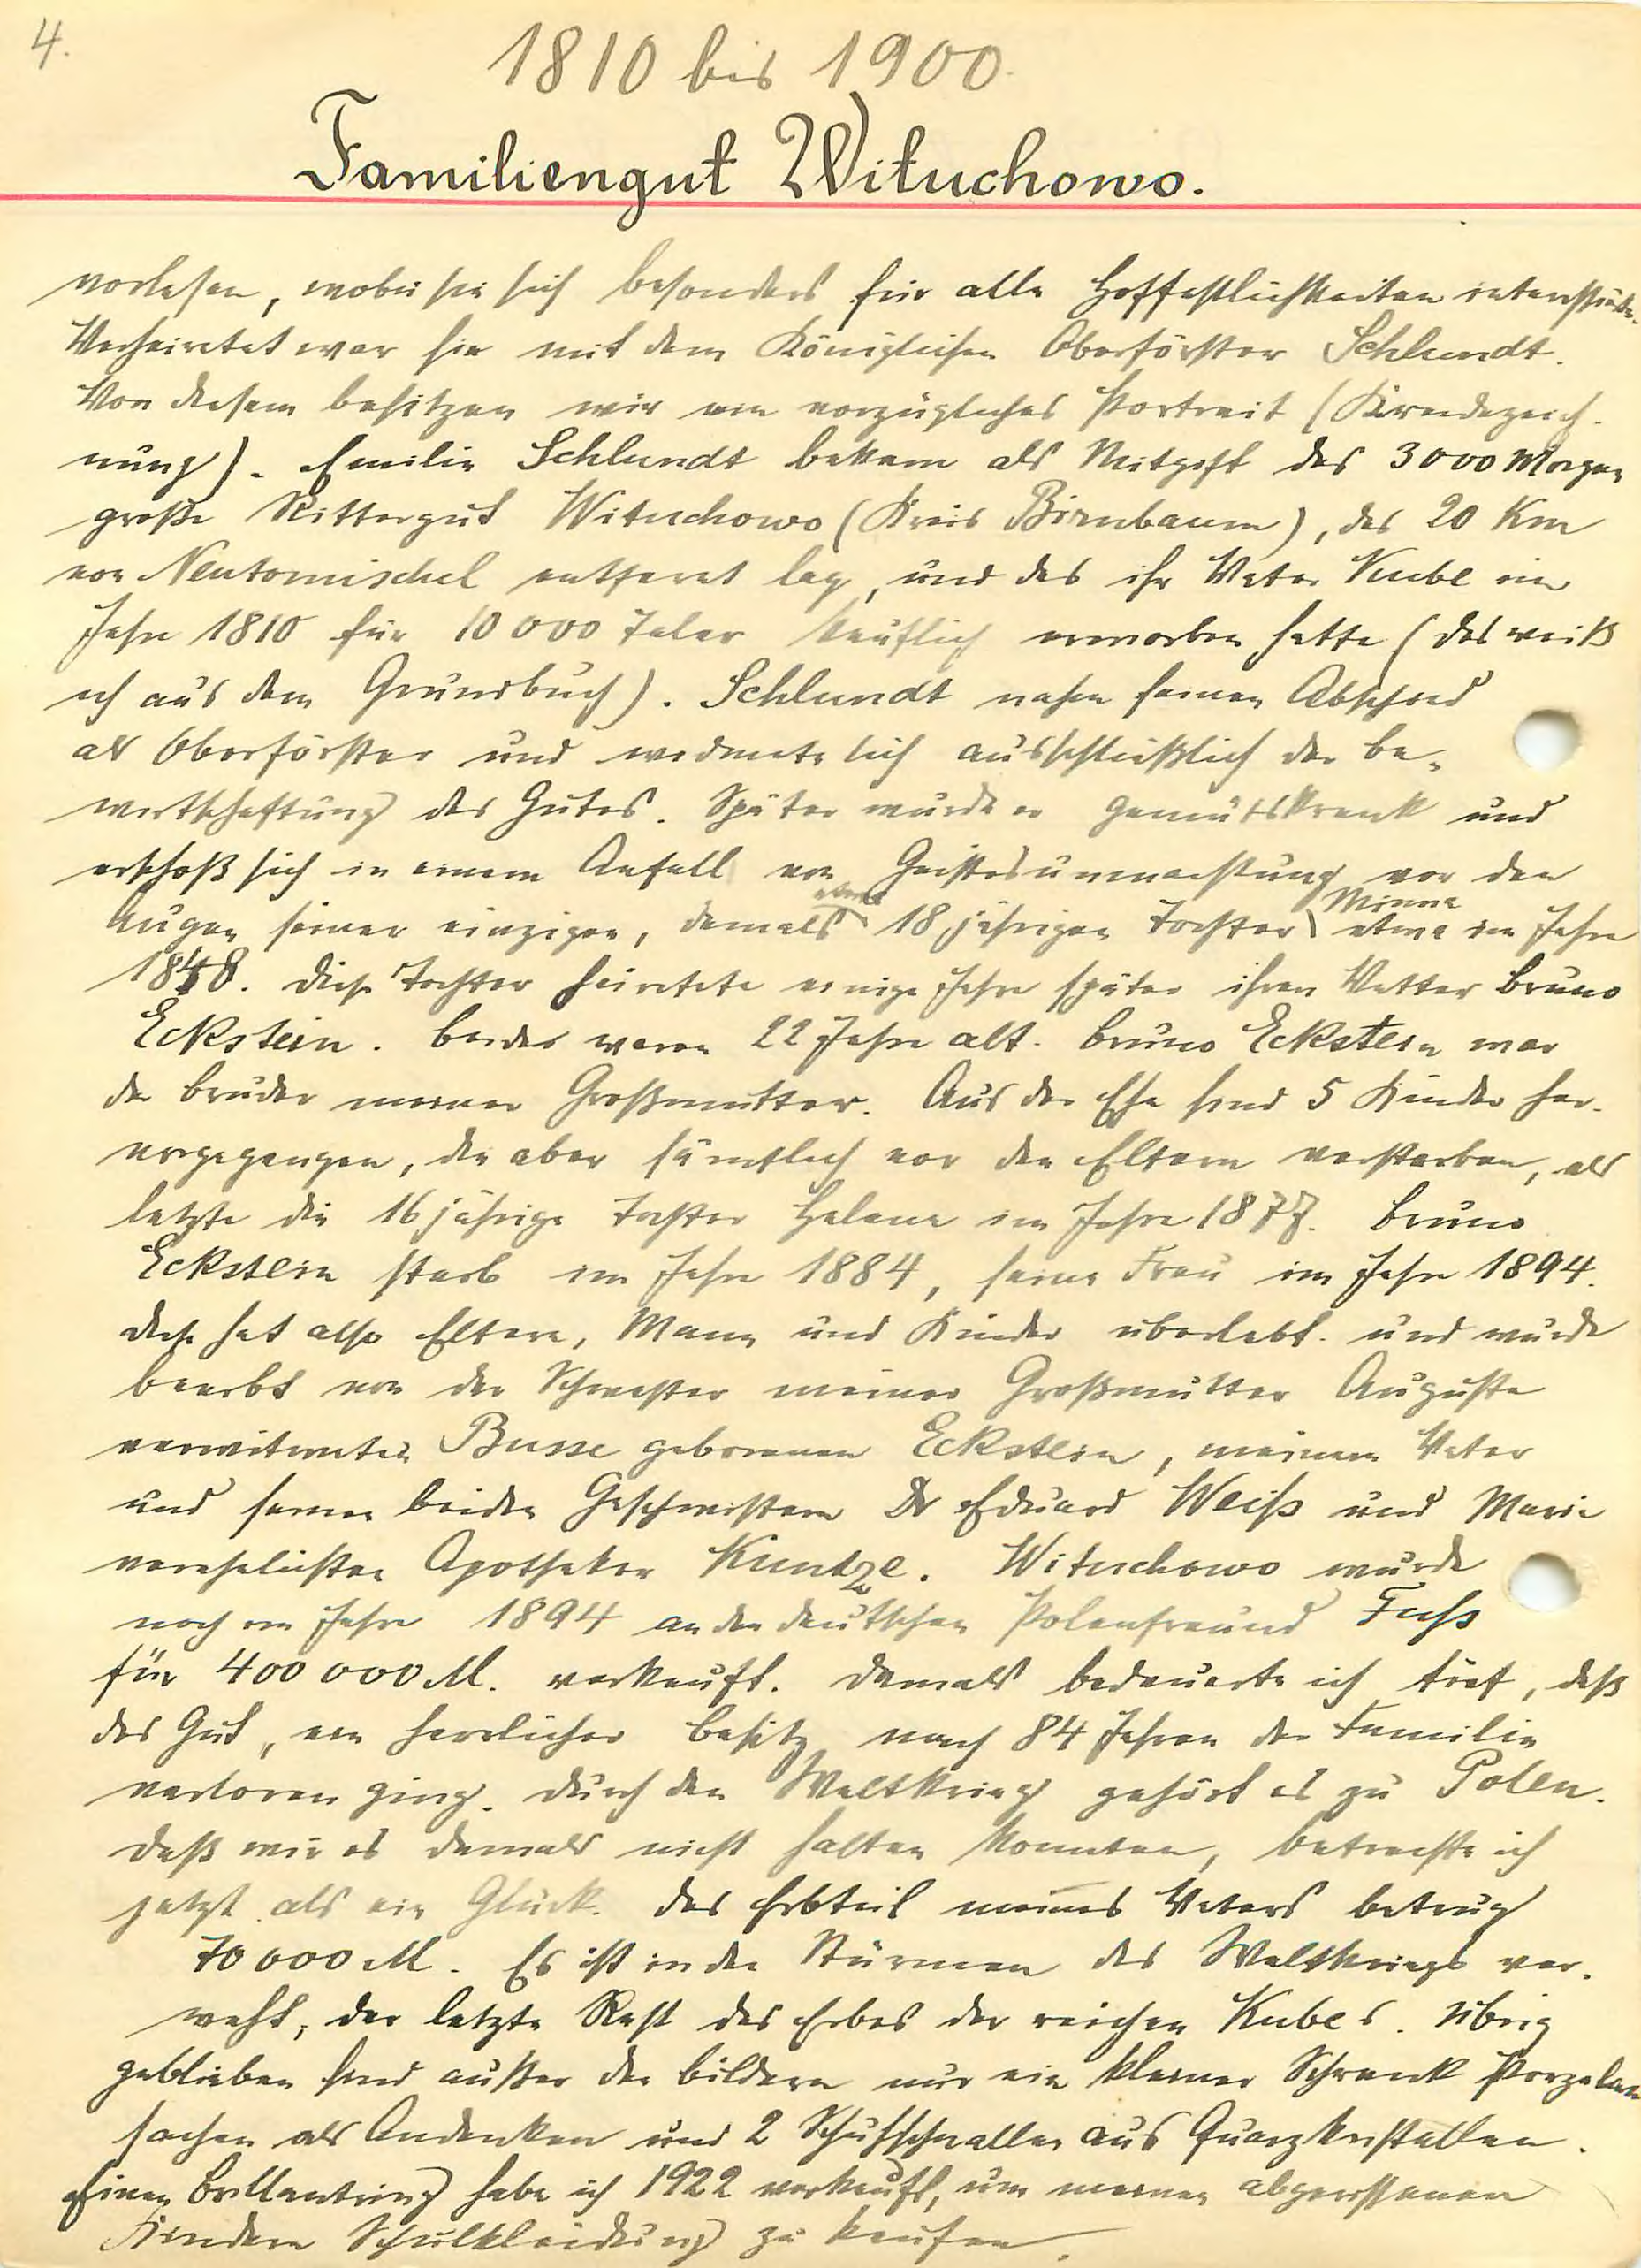 4.
1810 bis 1900.
Familiengut Wituchowo.
vorlesen, wobei sie sich besonders für alle Hoffestlichkeiten interessierte.
Verheiratet war sie mit dem Königlichen Oberförster Schlundt.
Von diesem besitzen wir ein vorzügliches Portrait (Kreidezeich-
nung). Emilie Schlundt bekam als Mitgift das 3000 Morgen
große Rittergut Wituchowo (Kreis Birnbaum), das 20 Km
von Neutomischel entfernt lag, und das ihr Vater Kube im
Jahre 1810 für 10 000 Taler käuflich erworben hatte (das weiß
ich aus dem Grundbuch). Schlundt nahm seinen Abschied
als Oberförster und widmete sich ausschließlich der Be-
wirtschaftung des Gutes. Später wurde er gemütskrank und
erschoß sich in einem Anfall von Geistesumnachtung vor den
Augen seiner einzigen, damals etwa 18 jährigen Tochter Minna etwa im Jahre
1848. Diese Tochter heiratete einige Jahre später ihren Vetter Bruno
Eckstein. Beide waren 22 Jahre alt. Bruno Eckstein war
der Bruder meiner Großmutter. Aus der Ehe sind 5 Kinder her-
vorgegangen, die aber sämtlich vor den Eltern verstarben, als
letzte die 16 jährige Tochter Helene im Jahre 1877. Bruno
Eckstein starb im Jahre 1884, seine Frau im Jahre 1894.
Diese hat also Eltern, Mann und Kinder überlebt. und wurde
beerbt von der Schwester meiner Großmutter Auguste
verwitweten Busse geborenen Eckstein, meinem Vater
und seinen beiden Geschwistern Dr Eduard Weiß und Marie
verehelichten Apotheker Kuntze. Wituchowo wurde
noch im Jahre 1894 an den deutschen Polenfreund Fuß
für 400 000 M. verkauft. Damals bedauerte ich tief, daß
das Gut, ein herrlicher Besitz nach 84 Jahren der Familie
verloren ging. Durch den Weltkrieg gehört es zu Polen.
Daß wir es damals nicht halten konnten, betrachte ich
jetzt als ein Glück. Das Erbteil meines Vaters betrug
70 000 M. Es ist in den Stürmen des Weltkriegs ver-
weht, der letzte Rest des Erbes der reichen Kubes. Übrig
geblieben sind außer den Bildern nur ein kleiner Schrank Porzelan
sachen als Andenken und 2 Schuhschnallen aus Quarzkristallen.
Einen Brillantring habe ich 1922 verkauft, um meinen abgerissenen
Kindern Schulkleidung zu kaufen.